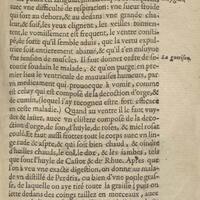 vne difficulté de respiration: vne sueur froide
qui sort au dehors, & au dedans vne grande cha-
leur, & soif, les yeux clignent, les veilles tourmen-
tent, le vomissement est frequent, le ventre consti-
pé, de sorte qu'il semble aduis, que la vertu expul-
trice soit entierement abatuë, & qu'il s'en ensuyue
vne tension de muscles. Il faut donner ordre de
contre toute soudain maladie, & qu'on purge en pre-
mier lieu le ventricule de mauuaises humeurs, par
vn medicament qui prouocque à vomir, comme
est celuy qui est composé de la decoction d'orge, &
de cumin, lequel i'ay recogneu estre fort efficace
en ceste maladie. Quand au ventre il le faut vuy-
der & lascher, auec vn clistere composé de la deco-
ction d'orge, de son, d'huyle, de roses, & miel rosat
coulé. Et faut aussi frotter tout le corps auec vn linge
rude & aspre, & qui soit bien chaud, & oindre
d'huiles chaudes, le col, le dos, & les iambes, tels
que sont l'huyle de Castor & de Rhue. Apres que
l'on a vsé vne exacte digestion, on donne au mala-
de vn distillé de Perdrix, ou bien d'vne poule gras-
se, de laquelle on aye tiré toute la graisse; puis on
iette dedans des coings taillez en morceaux, auec
La guerison.